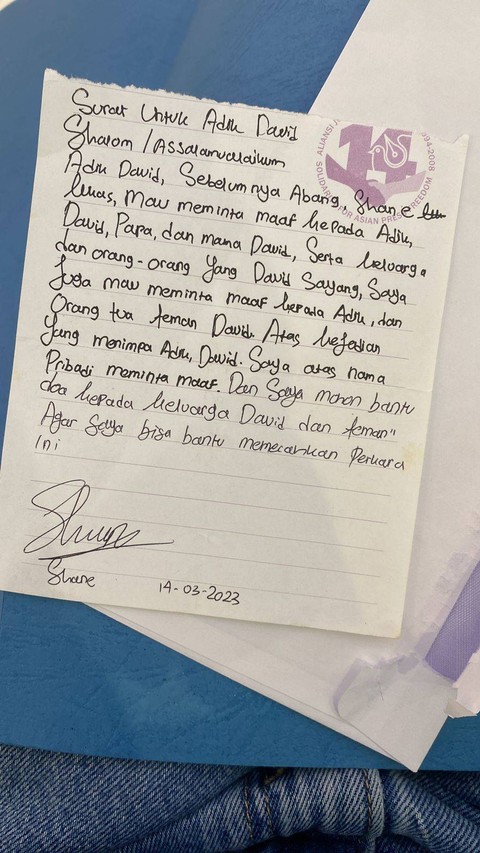 Surat Untuk Adik David
Shalom / Assalamualaikum
Adik David, Sebelumnya Abang, Shane
lukas, mau meminta maaf kepada Adik,
David, Papa, dan mama David, Serta keluarga
dan orang-orang Yang David Sayang, Saya
Juga mau meminta maaf kepada Adik, dan
Orang tua teman David. Atas kejadian
Yang menimpa Adik, David. Saya atas nama
Pribadi meminta maaf. Dan Saya mohon bantu
doa kepada keluarga David dan teman"
Agar Saya bisa bantu memecahkan Perkara
Ini
Shane
14-03-2023
ALIANSI
14
1994-2008
SOLIDARITY FOR ASIAN PRESS FREEDOM